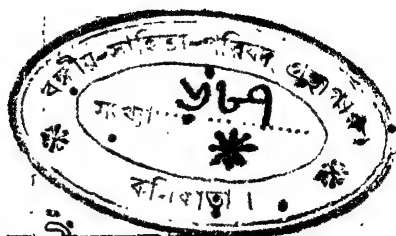 বঙ্গীয়-সাহিত্য-পরিষদ্ গ্রন্থাগার।
সংখ্যা ৬৮৭
কলিকাতা।